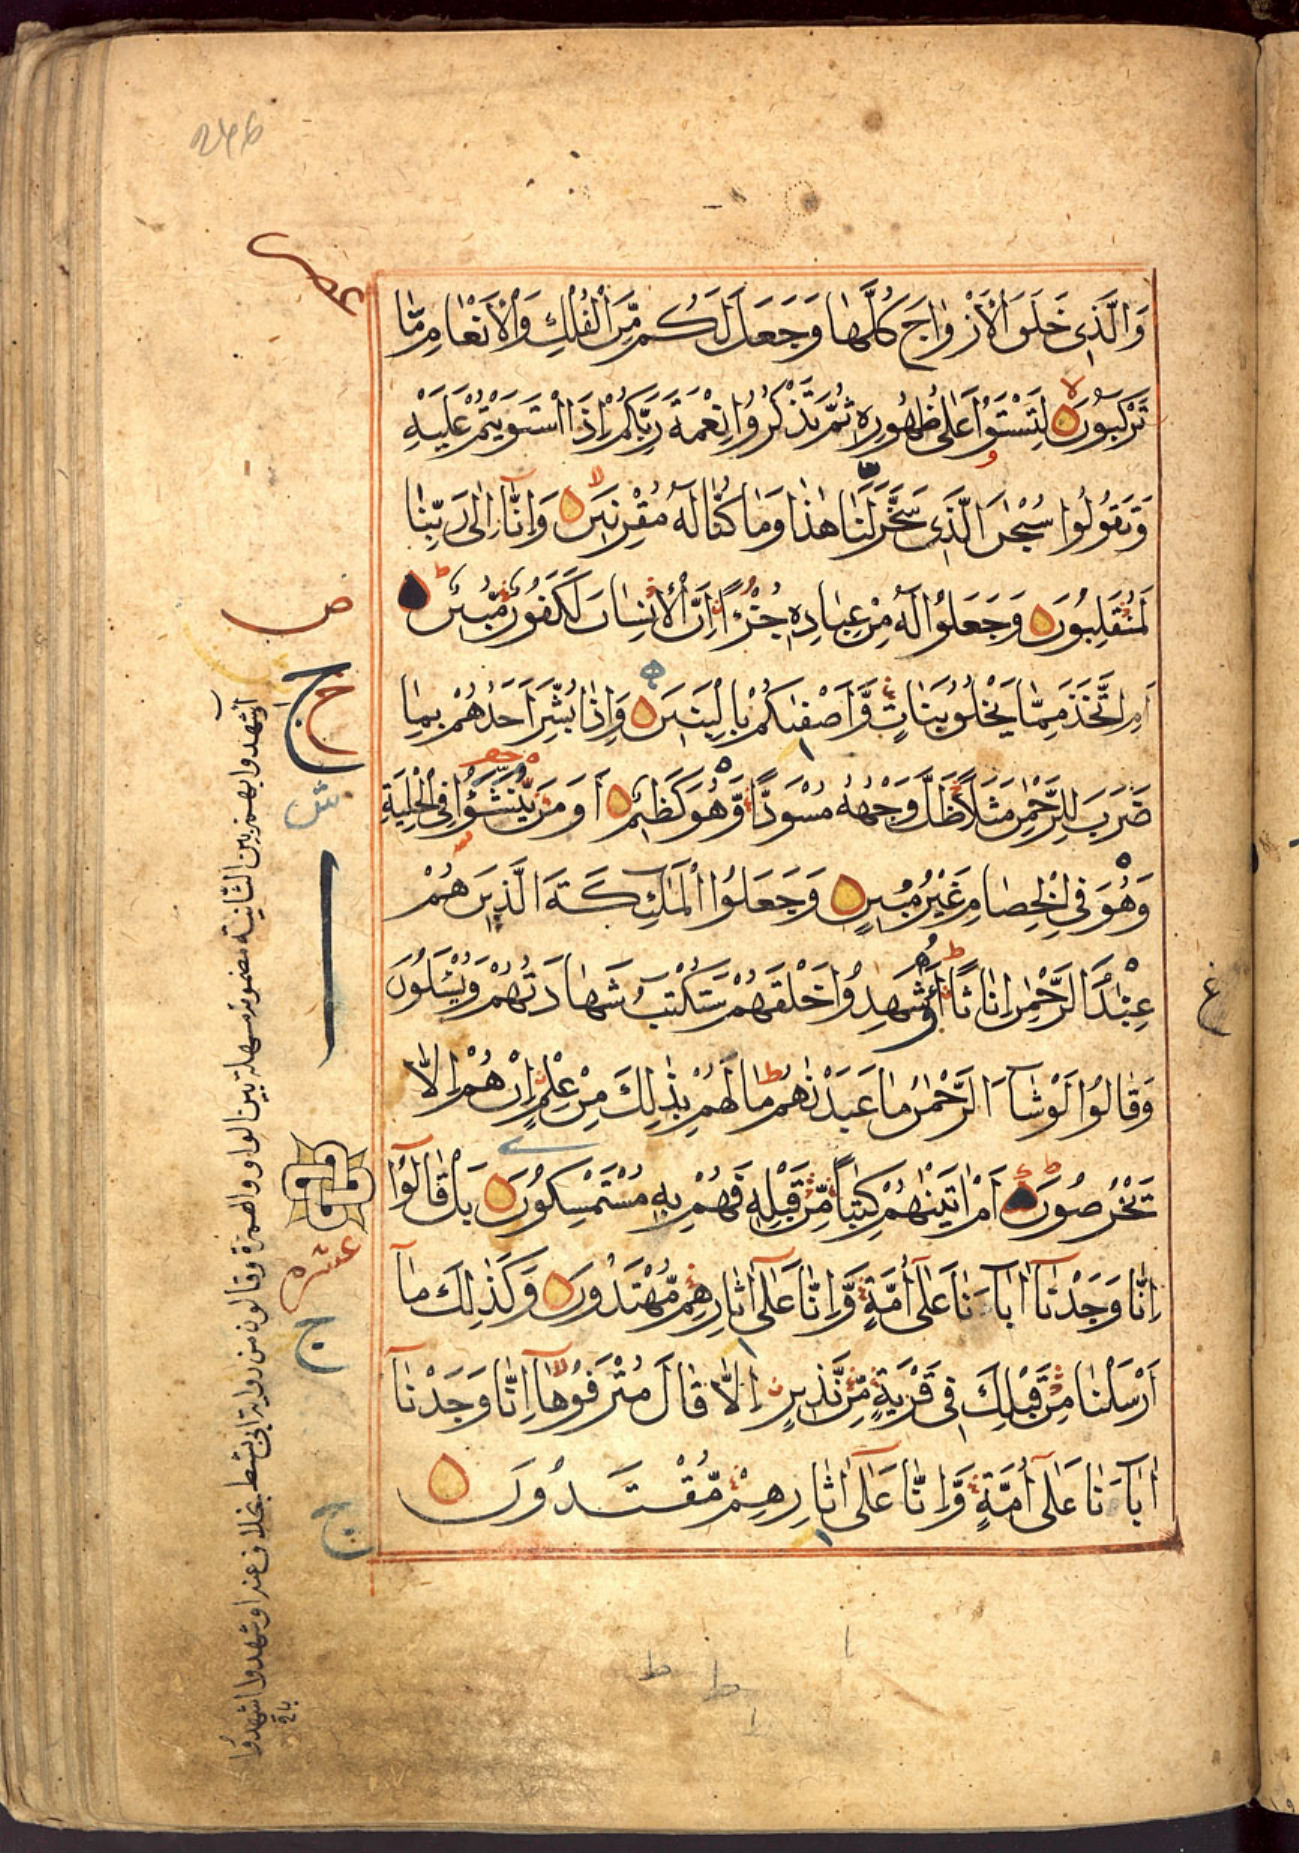 246
وَالَّذِى خَلَقَ الْاَزْوَاجَ كُلَّهَا وَجَعَلَ لَكُمْ مِّنَ الْفُلْكِ وَالْاَنْعَامِ مَا
تَرْكَبُونَ لِتَسْتَوُا عَلٰى ظُهُورِهٖ ثُمَّ تَذْكُرُوا نِعْمَةَ رَبِّكُمْ اِذَا اسْتَوَيْتُمْ عَلَيْهِ
وَتَقُولُوا سُبْحٰنَ الَّذِى سَخَّرَ لَنَا هٰذَا وَمَا كُنَّا لَهُ مُقْرِنِينَ وَاِنَّا اِلٰى رَبِّنَا
لَمُنْقَلِبُونَ وَجَعَلُوا لَهُ مِنْ عِبَادِهٖ جُزْءًا اِنَّ الْاِنْسَانَ لَكَفُورٌ مُّبِينٌ
اَمِ اتَّخَذَ مِمَّا يَخْلُقُ بَنَاتٍ وَّاَصْفٰىكُمْ بِالْبَنِينَ وَاِذَا بُشِّرَ اَحَدُهُمْ بِمَا
ضَرَبَ لِلرَّحْمٰنِ مَثَلًا ظَلَّ وَجْهُهُ مُسْوَدًّا وَّهُوَ كَظِيمٌ اَوَمَنْ يُّنَشَّؤُا فِى الْحِلْيَةِ
وَهُوَ فِى الْخِصَامِ غَيْرُ مُبِينٍ وَجَعَلُوا الْمَلٰئِكَةَ الَّذِينَ هُمْ
عِبٰدُ الرَّحْمٰنِ اِنَاثًا اَشَهِدُوا خَلْقَهُمْ سَتُكْتَبُ شَهَادَتُهُمْ وَيُسْئَلُونَ
وَقَالُوا لَوْ شَآءَ الرَّحْمٰنُ مَا عَبَدْنٰهُمْ مَا لَهُمْ بِذٰلِكَ مِنْ عِلْمٍ اِنْ هُمْ اِلَّا
يَخْرُصُونَ اَمْ اٰتَيْنٰهُمْ كِتٰبًا مِّنْ قَبْلِهٖ فَهُمْ بِهٖ مُسْتَمْسِكُونَ بَلْ قَالُوٓا
اِنَّا وَجَدْنَآ اٰبَآءَنَا عَلٰٓى اُمَّةٍ وَّاِنَّا عَلٰٓى اٰثَارِهِمْ مُّهْتَدُونَ وَكَذٰلِكَ مَآ
اَرْسَلْنَا مِنْ قَبْلِكَ فِى قَرْيَةٍ مِّنْ نَّذِيرٍ اِلَّا قَالَ مُتْرَفُوهَآ اِنَّا وَجَدْنَآ
اٰبَآءَنَا عَلٰٓى اُمَّةٍ وَّاِنَّا عَلٰٓى اٰثَارِهِمْ مُّقْتَدُونَ
ص
ج
ش
عشره
ج
ج
ع
أاشهدوا بهمزتين الثانية مضمومة مسهلة بين الواو والهمزة وقالون من رواية ابى نشيط بخلاف عنه اوشهدوا اشهدوا
باق